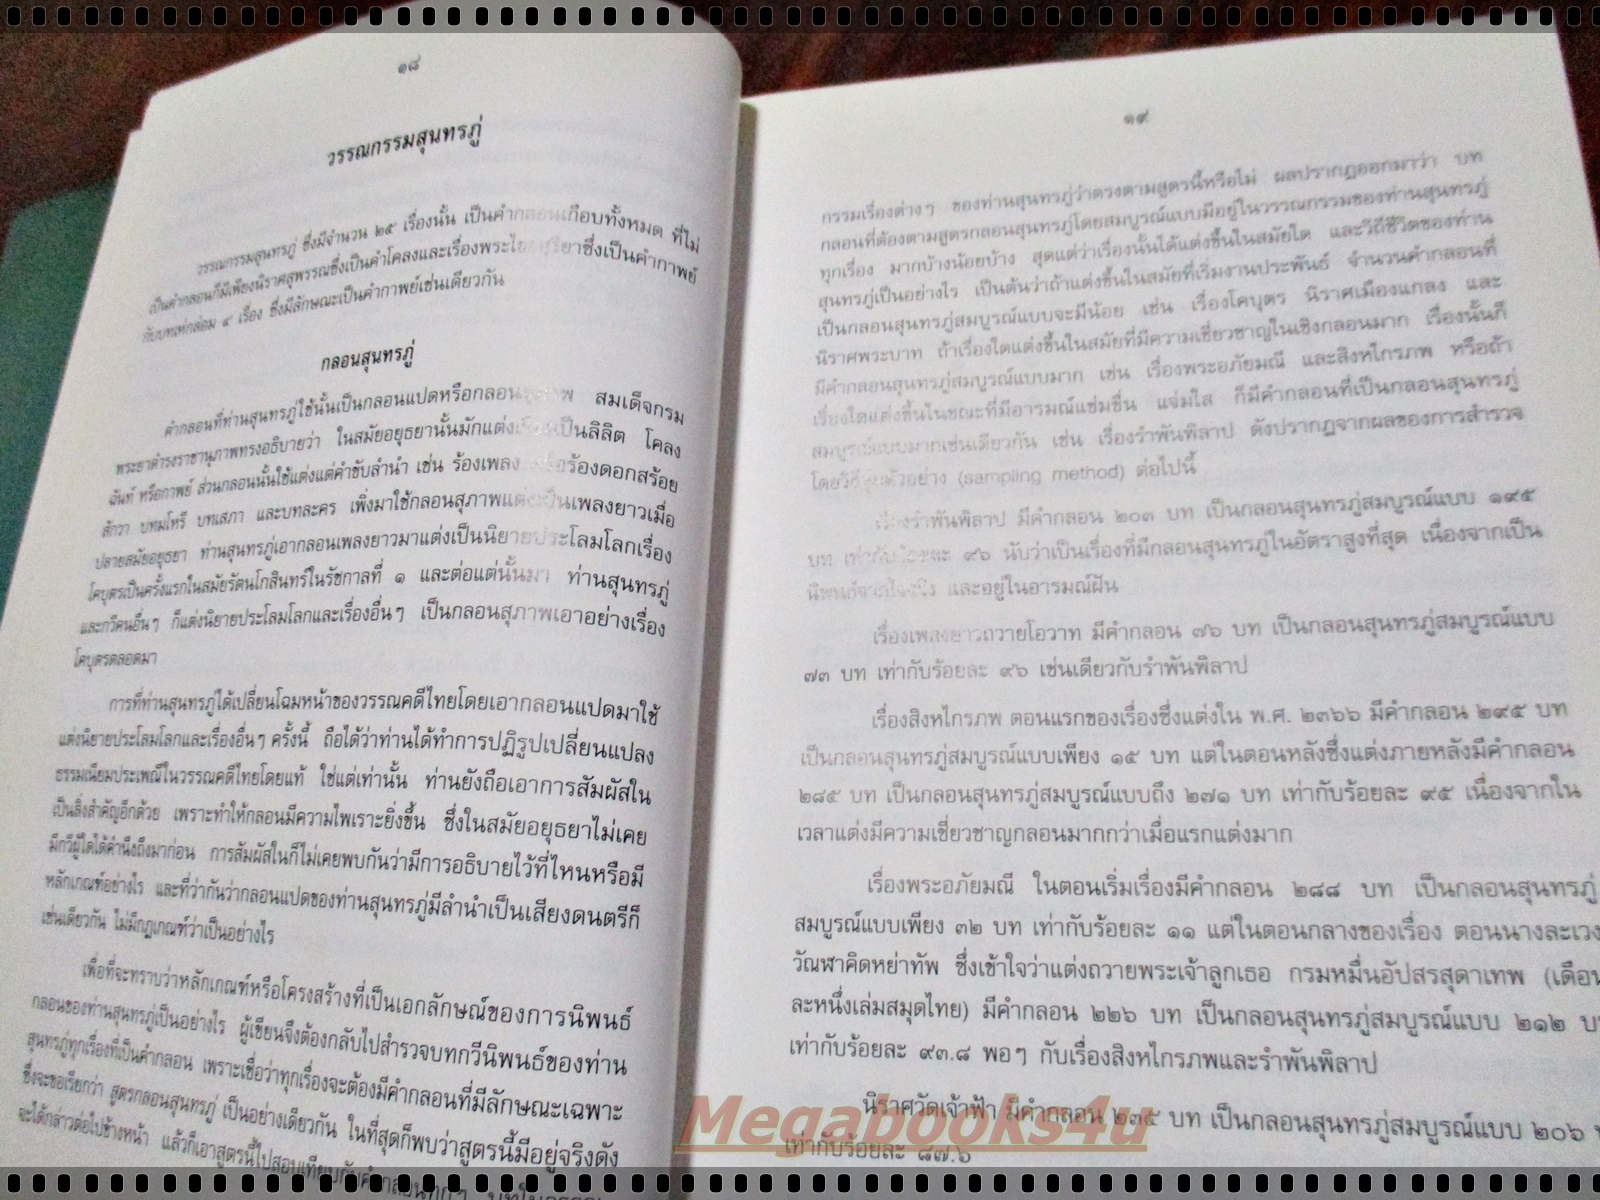 ๑๘
วรรณกรรมสุนทรภู่
วรรณกรรมสุนทรภู่ ซึ่งมีจำนวน ๒๕ เรื่องนั้น เป็นคำกลอนเกือบทั้งหมด ที่ไม่
เป็นคำกลอนก็มีเพียงนิราศสุพรรณซึ่งเป็นคำโคลงและเรื่องพระไชยสุริยาซึ่งเป็นคำกาพย์
กับบทเห่กล่อม ๔ เรื่อง ซึ่งมีลักษณะเป็นคำกาพย์เช่นเดียวกัน
กลอนสุนทรภู่
คำกลอนที่ท่านสุนทรภู่ใช้นั้นเป็นกลอนแปดหรือกลอนสุภาพ สมเด็จกรม
พระยาดำรงราชานุภาพทรงอธิบายว่า ในสมัยอยุธยานั้นมักแต่งเรื่องเป็นลิลิต โคลง
ฉันท์ หรือกาพย์ ส่วนกลอนนั้นใช้แต่งแต่คำขับลำนำ เช่น ร้องเพลง หรือร้องดอกสร้อย
สักวา บทมโหรี บทเสภา และบทละคร เพิ่งมาใช้กลอนสุภาพแต่งเป็นเพลงยาวเมื่อ
ปลายสมัยอยุธยา ท่านสุนทรภู่เอากลอนเพลงยาวมาแต่งเป็นนิยายประโลมโลกเรื่อง
โคบุตรเป็นครั้งแรกในสมัยรัตนโกสินทร์ในรัชกาลที่ ๑ และต่อแต่นั้นมา ท่านสุนทรภู่
และกวีคนอื่นๆ ก็แต่งนิยายประโลมโลกและเรื่องอื่นๆ เป็นกลอนสุภาพเอาอย่างเรื่อง
โคบุตรตลอดมา
การที่ท่านสุนทรภู่ได้เปลี่ยนโฉมหน้าของวรรณคดีไทยโดยเอากลอนแปดมาใช้
แต่งนิยายประโลมโลกและเรื่องอื่นๆ ครั้งนี้ ถือได้ว่าท่านได้ทำการปฏิรูปเปลี่ยนแปลง
ธรรมเนียมประเพณีในวรรณคดีไทยโดยแท้ ใช่แต่เท่านั้น ท่านยังถือเอาการสัมผัสใน
เป็นสิ่งสำคัญอีกด้วย เพราะทำให้กลอนมีความไพเราะยิ่งขึ้น ซึ่งในสมัยอยุธยาไม่เคย
มีกวีผู้ใดได้คำนึงถึงมาก่อน การสัมผัสในก็ไม่เคยพบกันว่ามีการอธิบายไว้ที่ไหนหรือมี
หลักเกณฑ์อย่างไร และที่ว่ากันว่ากลอนแปดของท่านสุนทรภู่มีลำนำเป็นเสียงดนตรีก็
เช่นเดียวกัน ไม่มีกฎเกณฑ์ว่าเป็นอย่างไร
เพื่อที่จะทราบว่าหลักเกณฑ์หรือโครงสร้างที่เป็นเอกลักษณ์ของการนิพนธ์
กลอนของท่านสุนทรภู่เป็นอย่างไร ผู้เขียนจึงต้องกลับไปสำรวจบทกวีนิพนธ์ของท่าน
สุนทรภู่ทุกเรื่องที่เป็นคำกลอน เพราะเชื่อว่าทุกเรื่องจะต้องมีคำกลอนที่มีลักษณะเฉพาะ
ซึ่งจะขอเรียกว่า สูตรกลอนสุนทรภู่ เป็นอย่างเดียวกัน ในที่สุดก็พบว่าสูตรนี้มีอยู่จริงดัง
จะได้กล่าวต่อไปข้างหน้า แล้วก็เอาสูตรนี้ไปสอบเทียบกับคำกลอนทุกๆ บทใน
๑๙
กรรมเรื่องต่างๆ ของท่านสุนทรภู่ว่าตรงตามสูตรนี้หรือไม่ ผลปรากฏออกมาว่า บท
กลอนที่ต้องตามสูตรกลอนสุนทรภู่โดยสมบูรณ์แบบมีอยู่ในวรรณกรรมของท่านสุนทรภู่
ทุกเรื่อง มากบ้างน้อยบ้าง สุดแต่ว่าเรื่องนั้นได้แต่งขึ้นในสมัยใด และวิถีชีวิตของท่าน
สุนทรภู่เป็นอย่างไร เป็นต้นว่าถ้าแต่งขึ้นในสมัยที่เริ่มงานประพันธ์ จำนวนคำกลอนที่
เป็นกลอนสุนทรภู่สมบูรณ์แบบจะมีน้อย เช่น เรื่องโคบุตร นิราศเมืองแกลง และ
นิราศพระบาท ถ้าเรื่องใดแต่งขึ้นในสมัยที่มีความเชี่ยวชาญในเชิงกลอนมาก เรื่องนั้นก็
มีคำกลอนสุนทรภู่สมบูรณ์แบบมาก เช่น เรื่องพระอภัยมณี และสิงหไกรภพ หรือถ้า
เรื่องใดแต่งขึ้นในขณะที่มีอารมณ์แช่มชื่น แจ่มใส ก็มีคำกลอนที่เป็นกลอนสุนทรภู่
สมบูรณ์แบบมากเช่นเดียวกัน เช่น เรื่องรำพันพิลาป ดังปรากฏจากผลของการสำรวจ
โดยวิธีสุ่มตัวอย่าง (sampling method) ต่อไปนี้
เรื่องรำพันพิลาป มีคำกลอน ๒๐๓ บท เป็นกลอนสุนทรภู่สมบูรณ์แบบ ๑๙๕
บท เท่ากับร้อยละ ๙๖ นับว่าเป็นเรื่องที่มีกลอนสุนทรภู่ในอัตราสูงที่สุด เนื่องจากเป็น
นิพนธ์จาก และอยู่ในอารมณ์ฝัน
เรื่องเพลงยาวถวายโอวาท มีคำกลอน ๗๖ บท เป็นกลอนสุนทรภู่สมบูรณ์แบบ
๗๓ บท เท่ากับร้อยละ ๙๖ เช่นเดียวกับรำพันพิลาป
เรื่องสิงหไกรภพ ตอนแรกของเรื่องซึ่งแต่งใน พ.ศ. ๒๓๖๖ มีคำกลอน ๒๙๕ บท
เป็นกลอนสุนทรภู่สมบูรณ์แบบเพียง ๑๕ บท แต่ในตอนหลังซึ่งแต่งภายหลังมีคำกลอน
๒๘๕ บท เป็นกลอนสุนทรภู่สมบูรณ์แบบถึง ๒๗๑ บท เท่ากับร้อยละ ๙๕ เนื่องจากใน
เวลาแต่งมีความเชี่ยวชาญกลอนมากกว่าเมื่อแรกแต่งมาก
เรื่องพระอภัยมณี ในตอนเริ่มเรื่องมีคำกลอน ๒๘๘ บท เป็นกลอนสุนทรภู่
สมบูรณ์แบบเพียง ๓๒ บท เท่ากับร้อยละ ๑๑ แต่ในตอนกลางของเรื่อง ตอนนางละเวง
วัณฬาคิดหย่าทัพ ซึ่งเข้าใจว่าแต่งถวายพระเจ้าลูกเธอ กรมหมื่นอัปสรสุดาเทพ (เดือน
ละหนึ่งเล่มสมุดไทย) มีคำกลอน ๒๒๖ บท เป็นกลอนสุนทรภู่สมบูรณ์แบบ ๒๑๒
เท่ากับร้อยละ ๙๓.๘ พอๆ กับเรื่องสิงหไกรภพและรำพันพิลาป
นิราศวัดเจ้าฟ้า มีคำกลอน ๒๓๕ บท เป็นกลอนสุนทรภู่สมบูรณ์แบบ ๒๐๖
เท่ากับร้อยละ ๘๗.๖
Megabooks4u